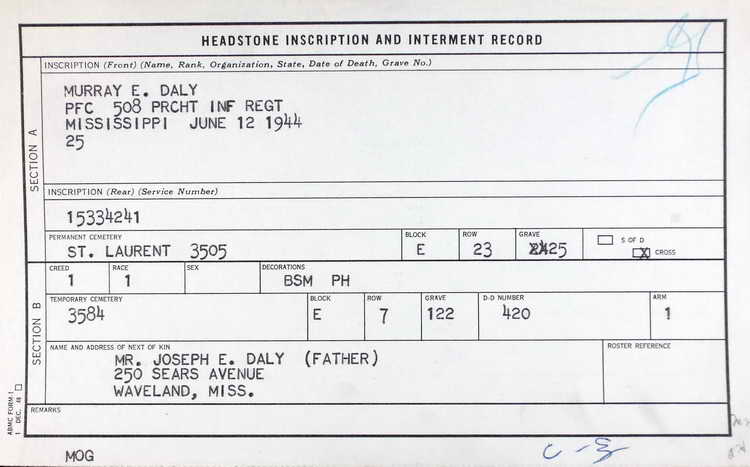 HEADSTONE INSCRIPTION AND INTERMENT RECORD
SECTION A
INSCRIPTION (Front) (Name, Rank, Organization, State, Date of Death, Grave No.)
MURRAY E. DALY
PFC 508 PRCHT INF REGT
MISSISSIPPI JUNE 12 1944
25
INSCRIPTION (Rear) (Service Number)
15334241
PERMANENT CEMETERY BLOCK ROW GRAVE S OF D
ST. LAURENT 3505 E 23 25 X CROSS
SECTION B
CREED RACE SEX DECORATIONS
1 1 BSM PH
TEMPORARY CEMETERY BLOCK ROW GRAVE D-D NUMBER ARM
3584 E 7 122 420 1
NAME AND ADDRESS OF NEXT OF KIN ROSTER REFERENCE
MR. JOSEPH E. DALY (FATHER)
250 SEARS AVENUE
WAVELAND, MISS.
REMARKS
ABMC FORM 1
1 DEC. 48
MOG